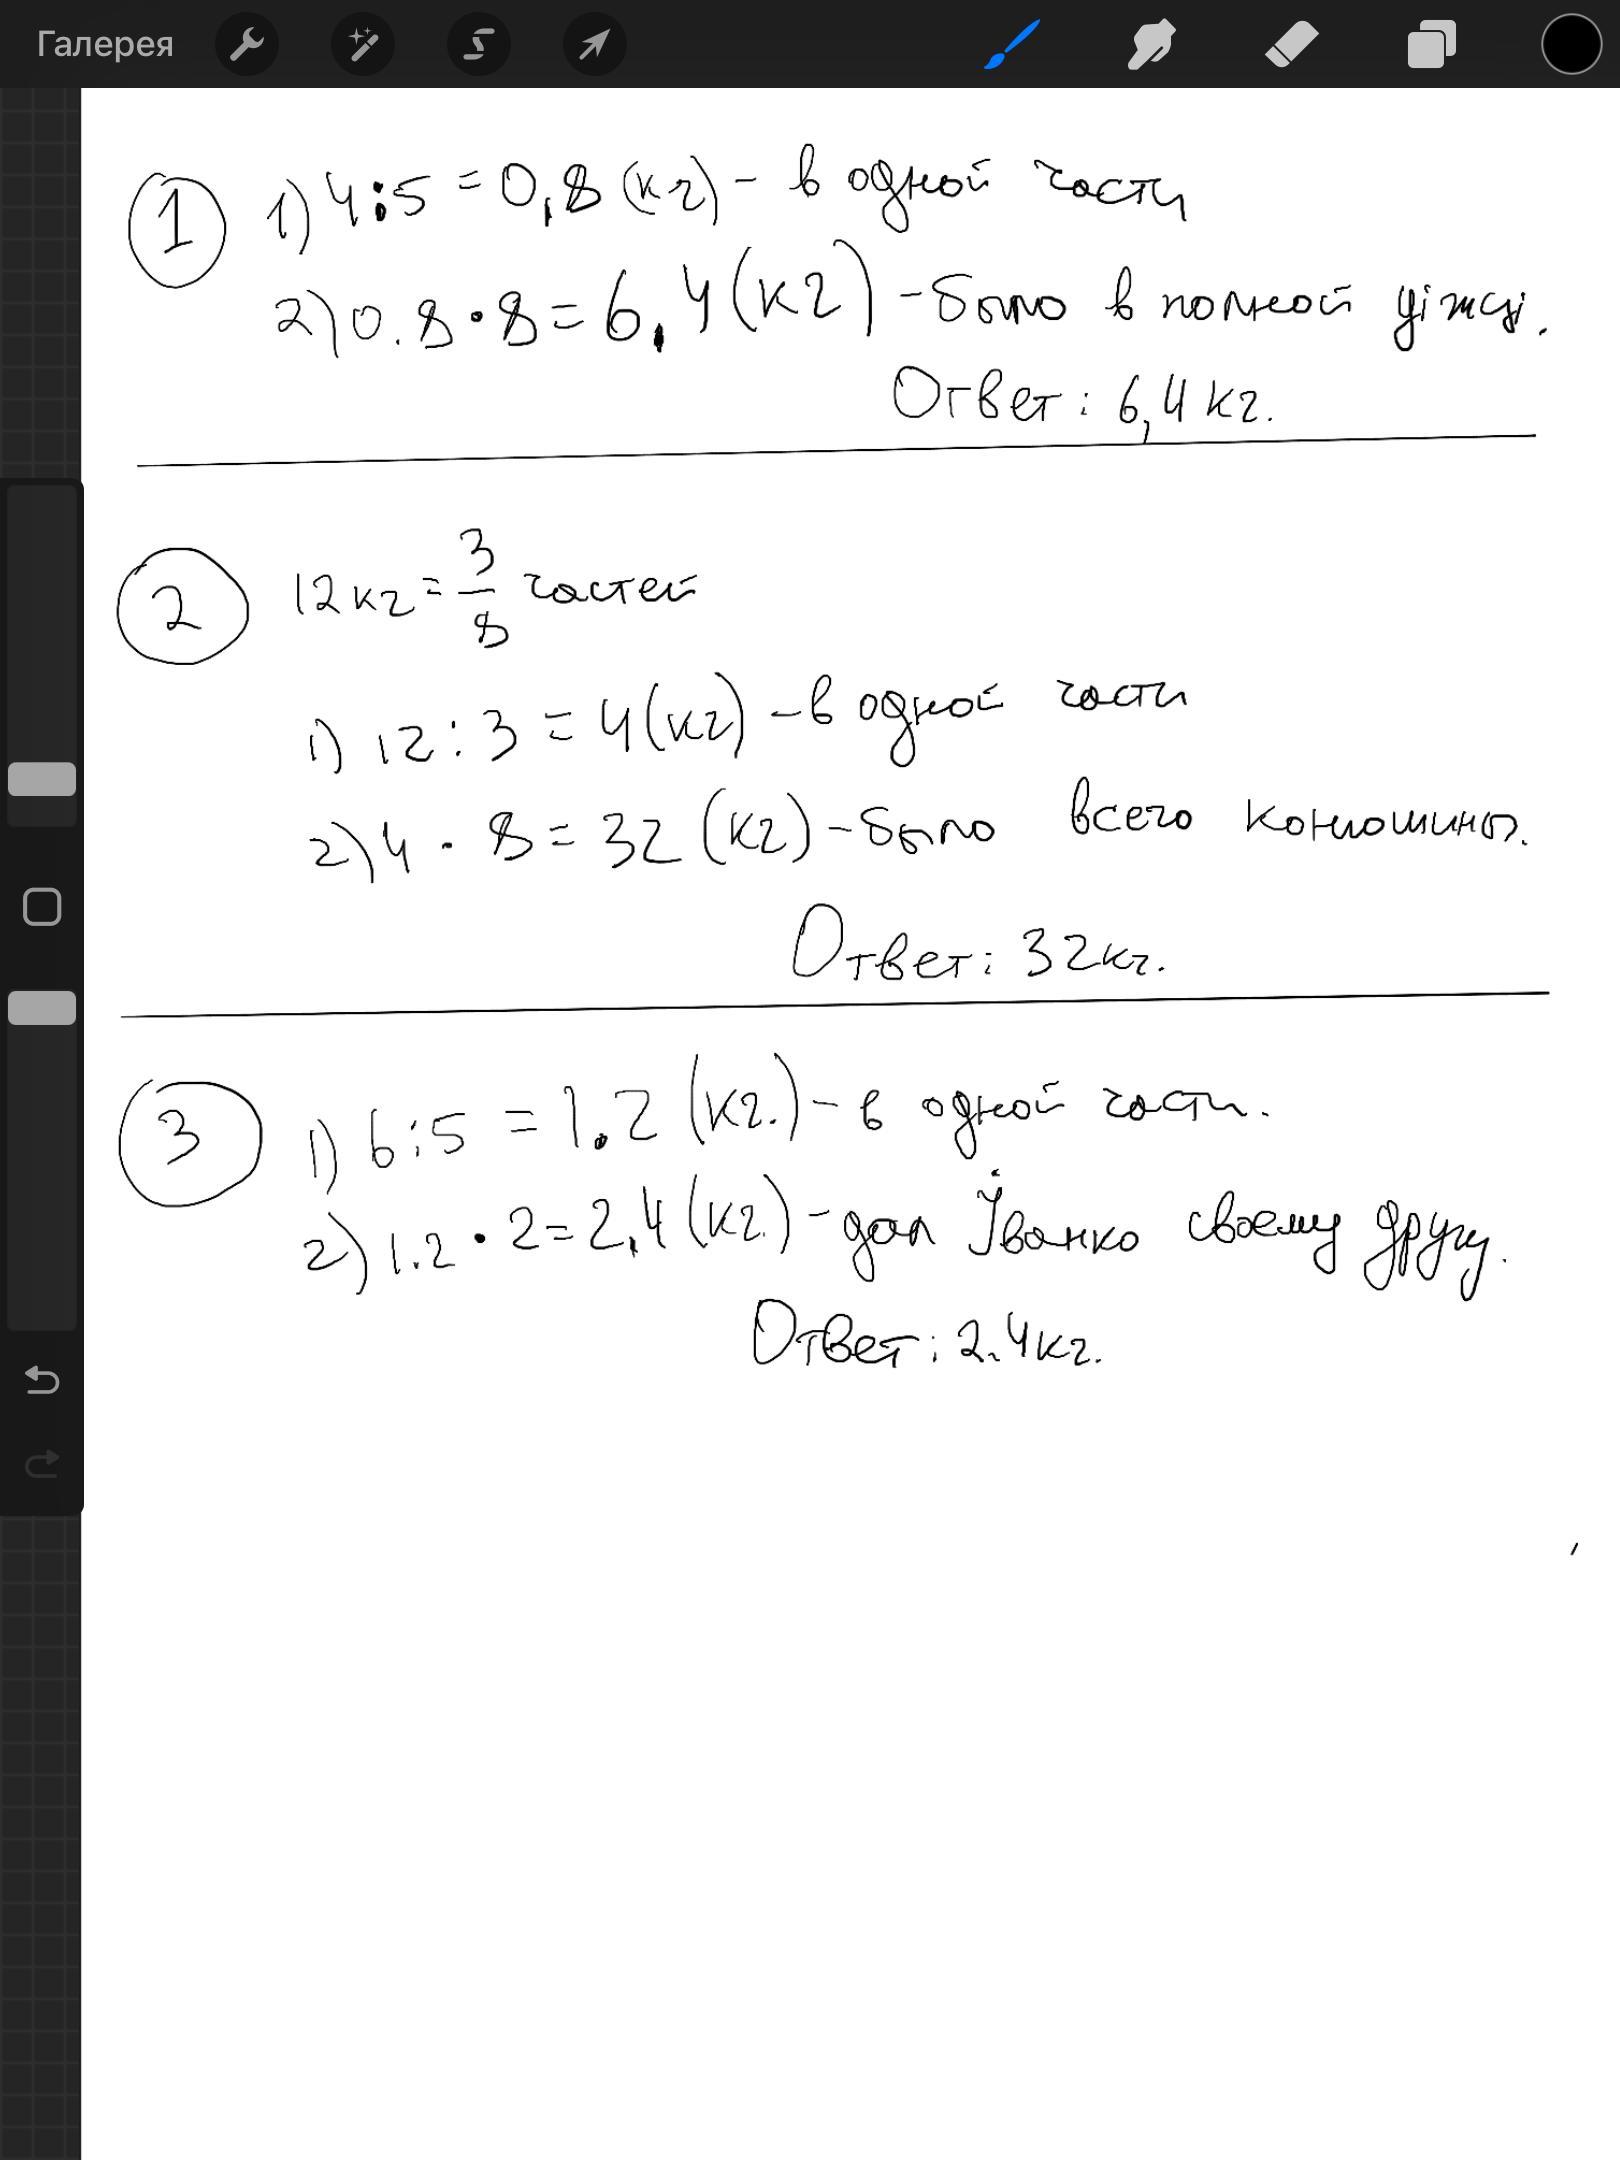 Галерея
1 1) 4:5 = 0,8 (кг) - в одной части
2) 0.8 · 8 = 6,4 (кг) - было в полной діжці.
Ответ: 6,4 кг.
2 12 кг = 3/8 частей
1) 12 : 3 = 4 (кг) - в одной части
2) 4 · 8 = 32 (кг) - было всего конюшины.
Ответ: 32 кг.
3 1) 6:5 = 1.2 (кг.) - в одной части.
2) 1.2 · 2 = 2,4 (кг.) - дал Іванко своему другу.
Ответ: 2.4 кг.